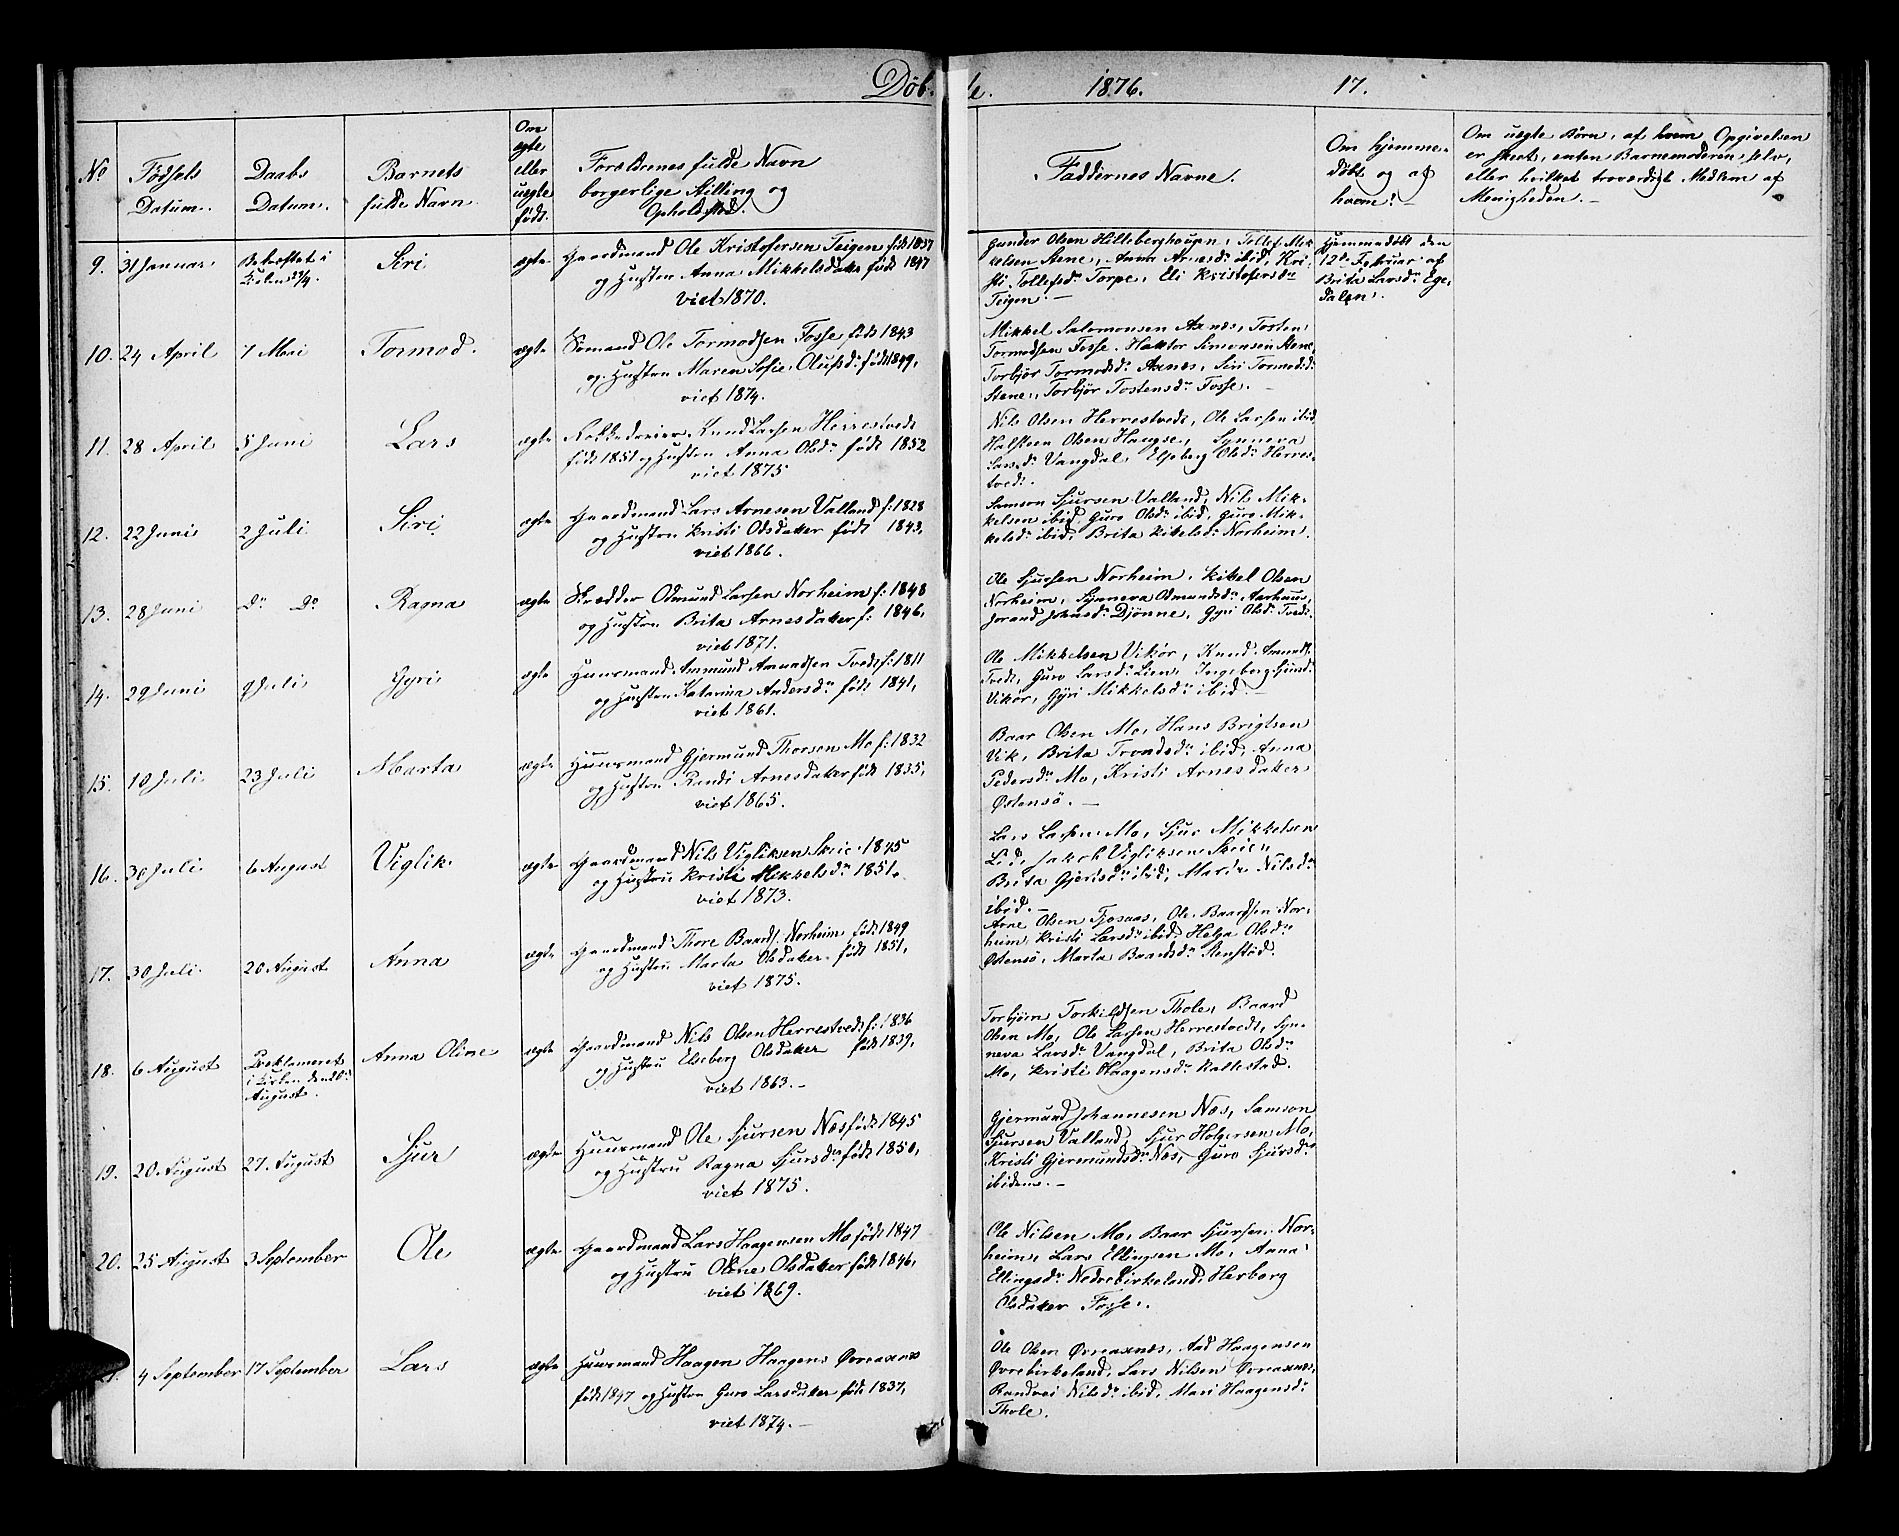 Döbte. 1876. 17.
No
Födsels
Datum.
Daabs
Datum.
Barnets
fulde Navn.
Om
ægte
eller
uægte
födt.
Forældrenes fulde Navn
borgerlige Stilling og
Opholdssted.
Faddernes Navne.
Om hjemme-
döbt og af
hvem?
Om uægte Börn, af hvem Opgivelsen
er skeet, enten Barnemoderen selv,
eller hvilket troværdigt Medlem af
Menigheden.
9. 31 Januar Siri ægte
Gaardmand Ole Kristofersen Teigen födt 1837
og Hustru Anna Mikkelsdatter födt 1847
viet 1870.
Gunder Olsen Hilleberghougen, Tollef Mik-
kelsen Stene, Anna Arnesdr ibid, Kri-
sti Tollefsdr Torpe, Eli Kristofersdr
Teigen.
Hjemmedöbt den
12te Februar af
Brita Larsdr Ege-
dalen.
10. 24 April 7 Mai Tormod. ægte
Sömand Ole Tormodsen Fosse födt 1843
og Hustru Maren Sofie Olufsdr födt 1849,
viet 1874.
Mikkel Salomonsen Axnes, Tosten
Tormodsen Fosse, Haktor Simonsen Stene,
Torbjör Tormodsdr Axnes, Siri Tormodsdr
Stene, Torbjör Tostensdr Fosse.
11. 28 April 5 Juni Lars ægte
Rokkedreier Knud Larsen Herrestvedt
födt 1851 og Hustru Anna Olsdr födt 1852
viet 1875
Nils Olsen Herrestvedt, Ole Larsen ibid,
Halsteen Olsen Haugse, Synneva
Larsdr Vangdal, Elseberg Olsdr Herres-
tvedt.
12. 22 Juni 2 Juli Siri ægte
Gaardmand Lars Arnesen Valland f: 1828
og Hustru Kristi Odsdatter födt 1843,
viet 1866.
Samson Sjursen Valland, Nils Mik-
kelsen ibid, Guro Olsdr ibid, Guro Mik-
kelsdr ibid, Brita Kitelsdr Norheim.
13. 28 Juni Do Do Ragna ægte
Skrædder Odmund Larsen Norheim f: 1848
og Hustru Brita Arnesdatter f: 1846,
viet 1871.
Ole Sjursen Norheim, Kittel Olsen
Norheim, Synneva Odmundsdr Aarhuus,
Jorand Johnsdr Djönne, Gyri Olsdr Tvedt.
14. 29 Juni 9 Juli Gyri ægte
Huusmand Ammund Amundsen Tvedt f: 1811
og Hustru Katarina Andersdr födt 1841,
viet 1861.
Ole Mikkelsen Vikör, Knud Amunds.
Tvedt, Guro Larsdr Lien, Ingeborg
Vikör, Gyri Mikkelsdr ibid.
15. 10 Juli 23 Juli Marta ægte
Huusmand Gjermund Thoresen Mo f: 1832
og Hustru Randi Arnesdatter födt 1835,
viet 1865.
Baar Olsen Mo, Hans Brigtsen
Vik, Brita Trondsdr ibid, Anna
Pedersdr Mo, Kristi Arnesdatter
Östensö.
16. 30 Juli 6 August Viglik ægte
Gaardmand Nils Vigliksen Skeie 1845
og Hustru Kristi Mikkelsdr 1851.
viet 1873.
Lars Larsen Mo, Sjur Mikkelsen
Lid, Jakob Vigliksen Skeie,
Brita Gjertsdr ibid, Marta Nilsdr
ibid.
17. 30 Juli 20 August Anna ægte
Gaardmand Thore Baards. Norheim födt 1849
og Hustru Marta Olsdatter födt 1851,
viet 1875.
Arne Olsen Tjosaas, Ole Baardsen Nor-
heim, Kristi Larsdr ibid, Helga Olsdr
Östensö, Marta Baardsdr Stenstöd.
18. 6 August
Proklameret
i Kirken den 20de
August.
Anna Oline ægte
Gaardmand Nils Olsen Herrestvedt f: 1836
og Hustru Elseberg Olsdatter födt 1839,
viet 1863.
Torbjörn Torkildsen Thole, Baard
Olsen Mo, Ole Larsen Herrestvedt, Syn-
neva Larsdr Vangdal, Brita Olsdr
Mo, Kristi Haagensdr Kalkestad.
19. 20 August 27 August Sjur ægte
Huusmand Ole Sjursen Næs födt 1845
og Hustru Ragna Sjursdr födt 1850,
viet 1875.
Gjermund Johannesen Næs, Samson
Sjursen Valland, Sjur Holgersen Mo,
Kristi Gjermundsdr Næs, Guro Sjursdr
ibidem.
20. 25 August 3 September Ole ægte
Gaardmand Lars Haagensen Mo födt 1847
og Hustru Oline Olsdatter födt 1846,
viet 1869.
Ole Nilsen Mo, Baar Sjursen Nor-
heim, Lars Ellingsen Mo, Anna
Ellingsdr Nedrebirkeland, Herborg
Olsdatter Fosse.
4 September 17 September Lars ægte
Huusmand Haagen Haagens Øvreaxnes
födt 1847 og Hustru Guro Larsdatter födt 1837,
viet 1874.
Ole Olsen Øvreaxnes, Aad Haagensen
Øvrebirkeland, Lars Nilsen Øvreaxnes,
Randvei Nilsdr ibid, Mari Haagensdr
Thole.